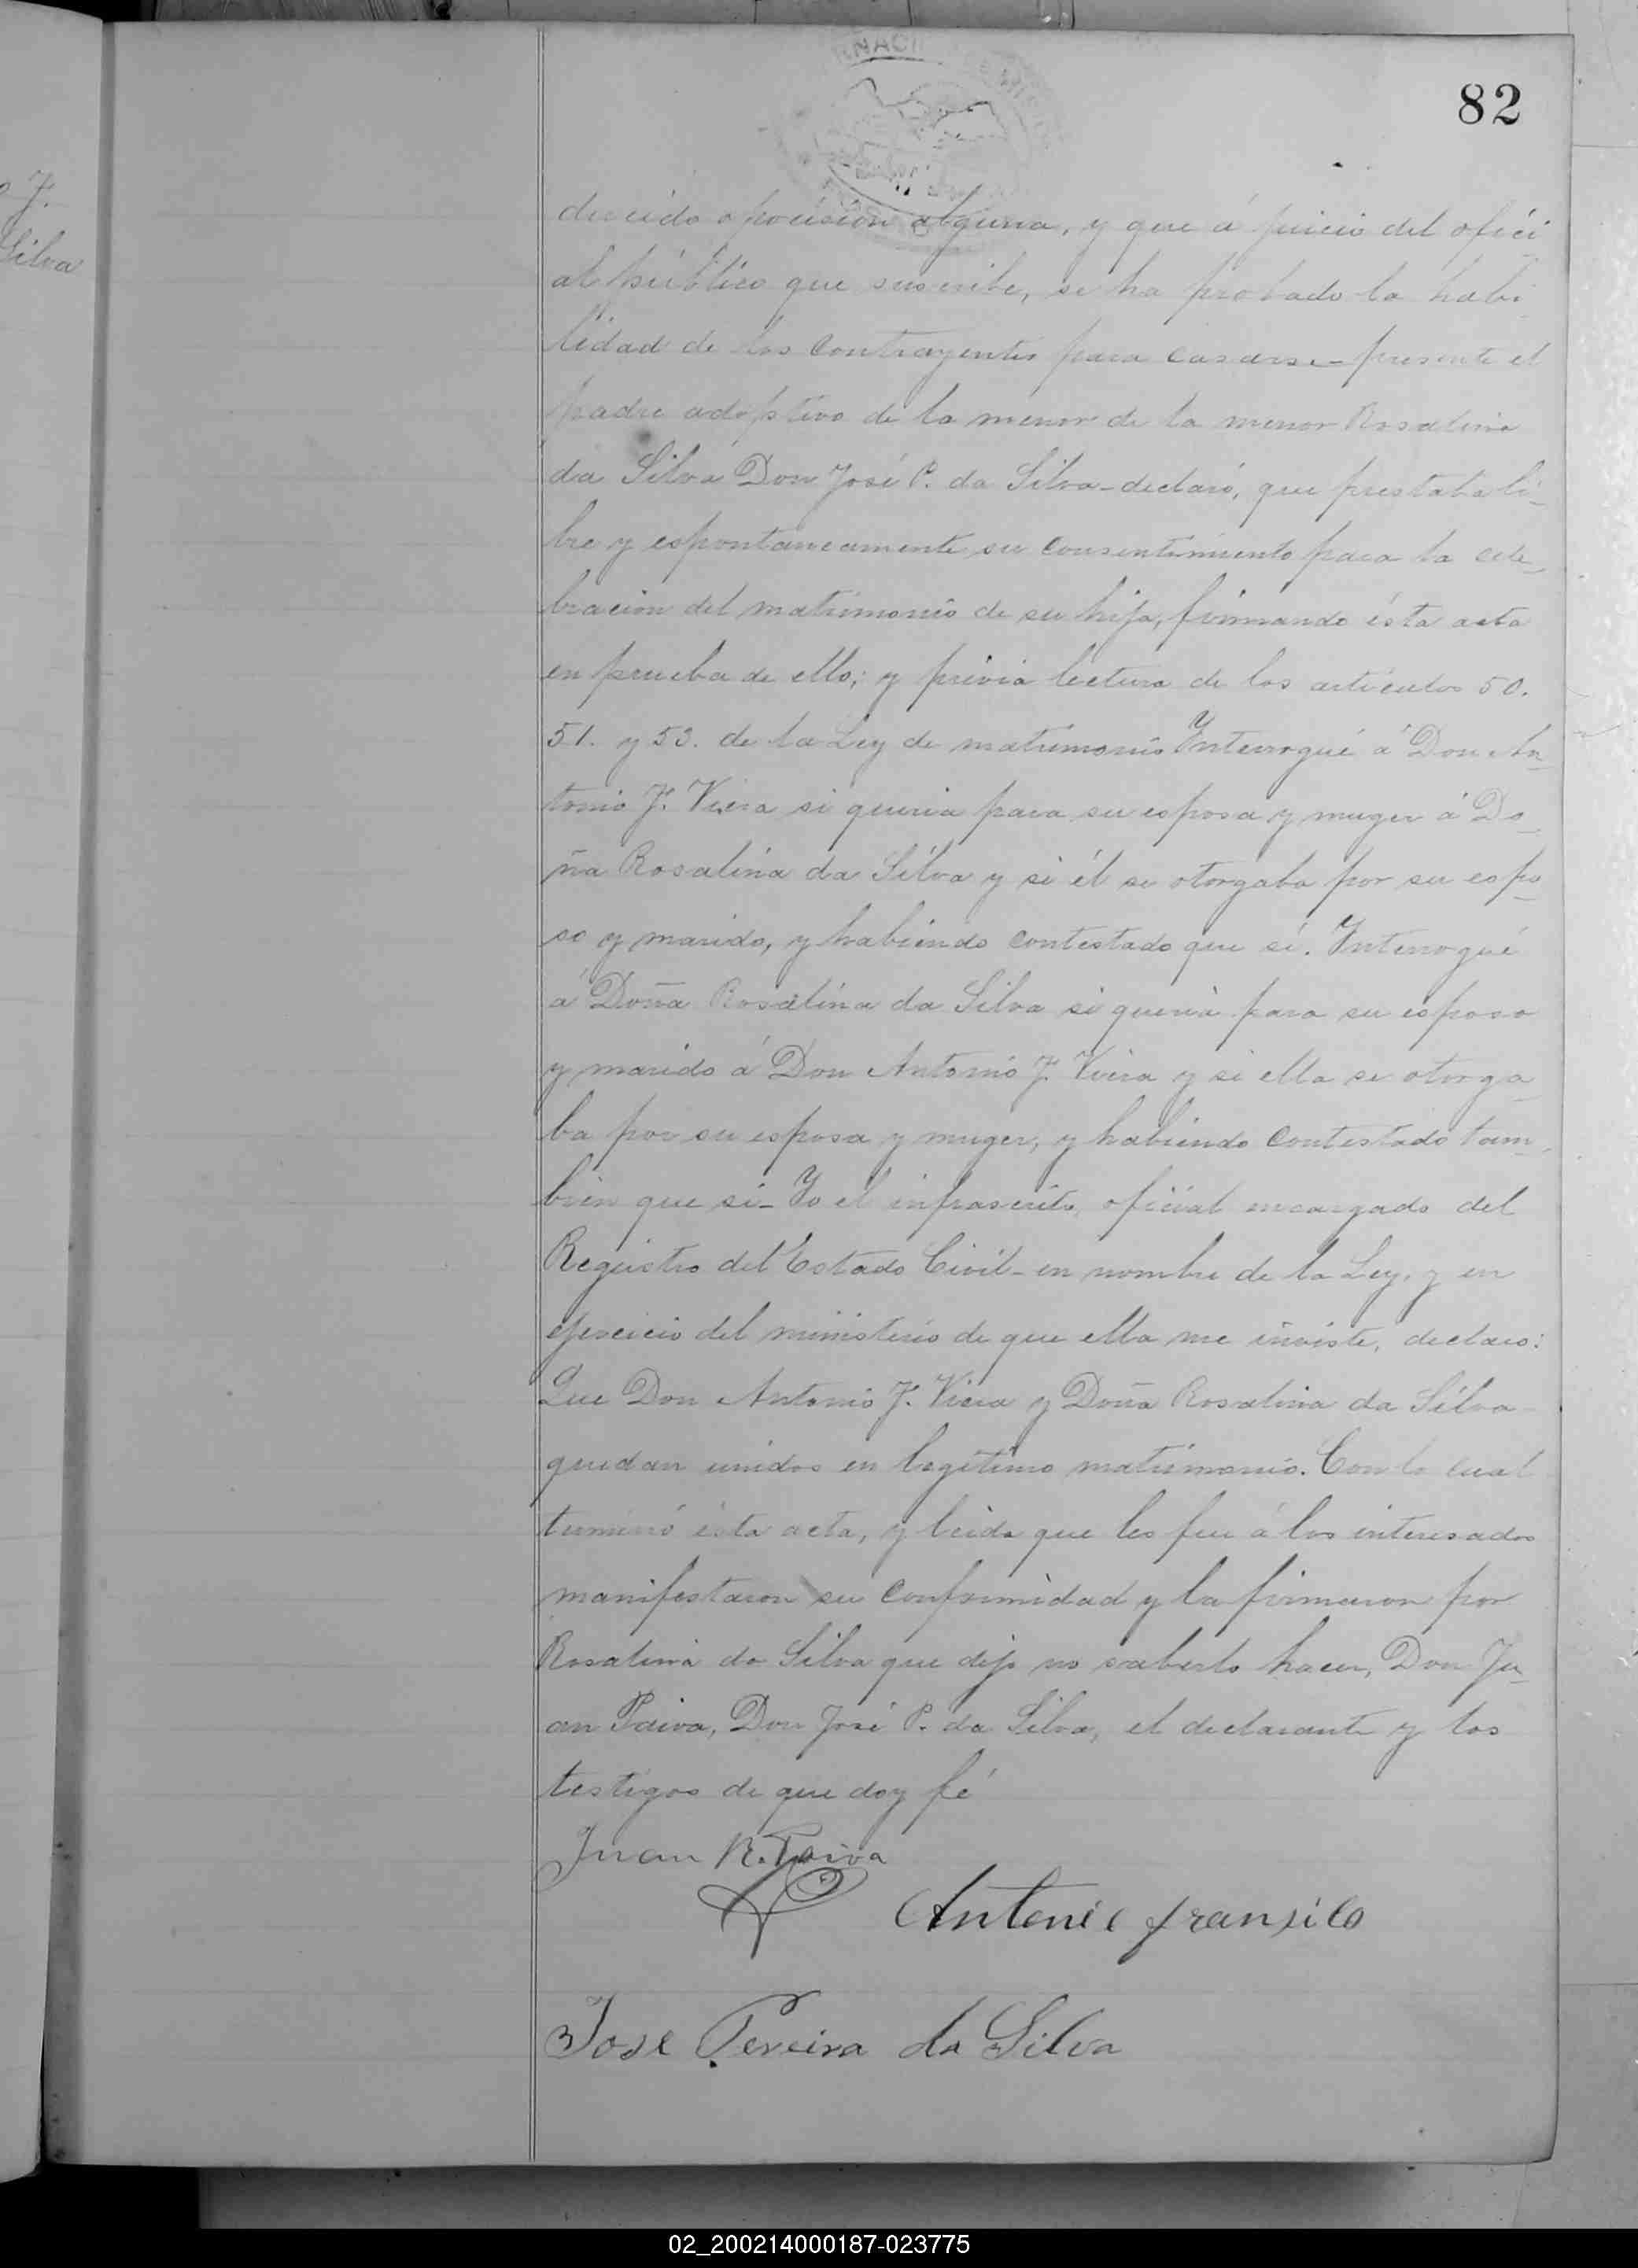 82
J.
Silva
ducido oposicion alguna, y que á juicio del ofici
al público que suscribe, se ha probado la habi
lidad de los contrayentes para casarse_ presente el
padre adoptivo de la menor de la menor Rosalina
da Silva Don José P. da Silva_declaró, que prestaba li_
bre y espontaneamente su consentimiento para la cele_
bracion del matrimonio de su hija, firmando ésta acta
en prueba de ello; y prévia lectura de los articulos 50.
51. y 53. de la Ley de matrimonio Interrogué á Don An_
tonio F. Viera si queria para su esposa y muger á Do_
ña Rosalina da Silva y si él se otorgaba por su espo_
so y marido, y habiendo contestado que sí. Interrogué
á Doña Rosalina da Silva si queria para su esposo
y marido á Don Antonio F. Viera y si ella se otorga_
ba por su esposa y muger, y habiendo contestado tam_
bien que si_ Yo el infrascrito, oficial encargado del
Registro del Estado Civil_ en nombre de la Ley, y en
ejercicio del ministerio de que ella me inviste, declaro:
Que Don Antonio F. Viera y Doña Rosalina da Silva
quedan unidos en legitimo matrimonio. Con lo cual
terminó ésta acta, y leida que les fue á los interesados
manifestaron su conformidad y la firmaron por
Rosalina da Silva que dijo no saberlo hacer, Don Ju_
an Paiva, Don José P. da Silva, el declarante y los
testigos de que doy fé
Juan R. Paiva
Antonio fransilo
Jose Pereira da Silva
02_200214000187-023775